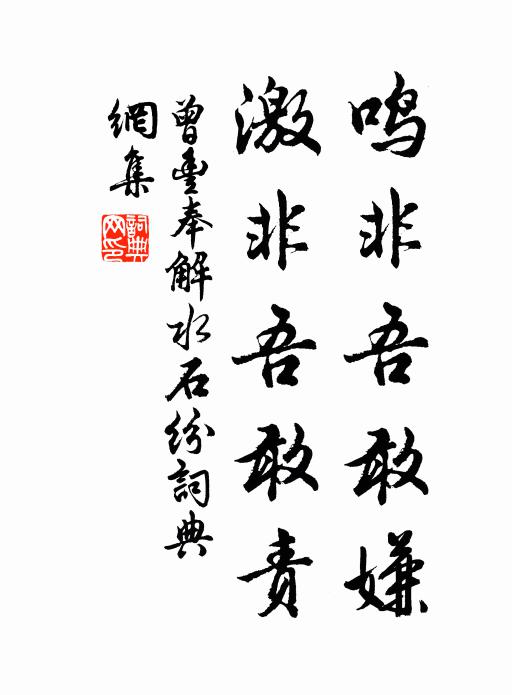 鸣非吾敢嫌
激非吾敢责
曾豊奉解水石纷詞典
網集
詞典
网印